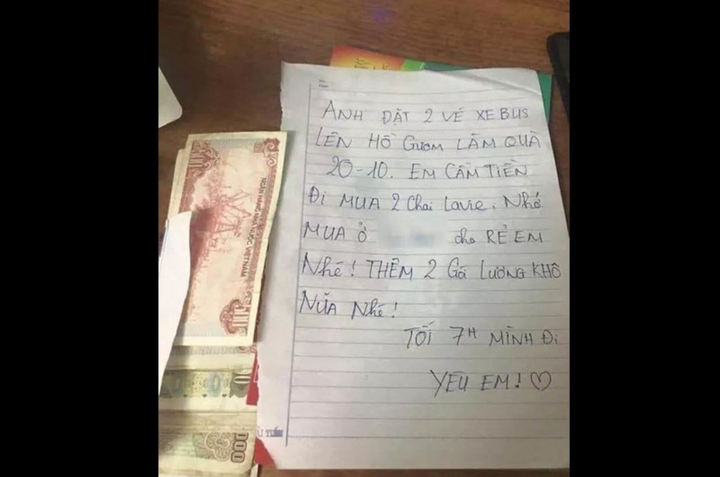 ANH ĐẶT 2 VÉ XE BUS
LÊN HỒ GƯƠM LÀM QUÀ
20-10. EM CẦM TIỀN
ĐI MUA 2 Chai Lavie. Nhớ
MUA Ở cho RẺ EM
Nhé! THÊM 2 Gói LƯƠNG KHÔ
NỮA Nhé!
TỐI 7H MÌNH ĐI
YÊU EM! ♡
NGÂN HÀNG NHÀ NƯỚC VIỆT NAM
000